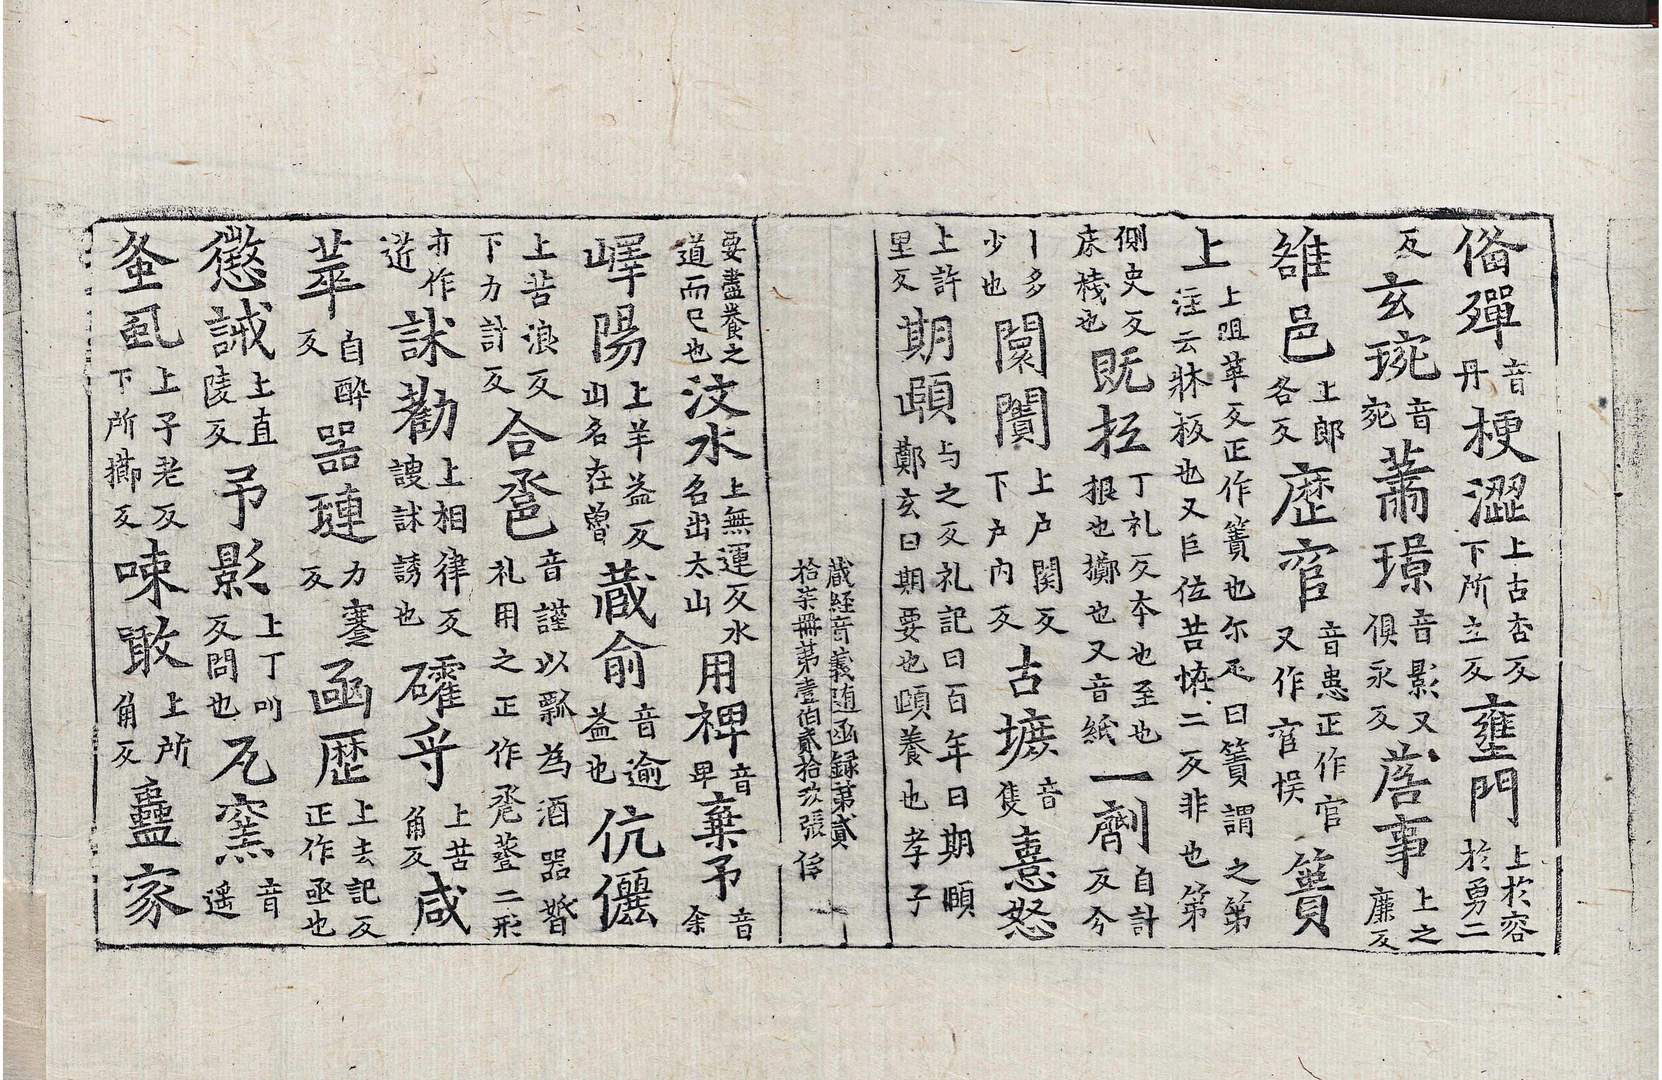 俻殫音丹梗澀上古杏反下所立反壅門上於容於勇二
反玄琬音宛蕭璟音影又俱永反詹事上之廉反
雒邑上郎各反歷官音患正作官又作官悮簀
上上阻革反正作簀也尓疋曰簀謂之第注云牀板也又巨位苦恠二反非也第
側史反床棧也既㧳丁礼反夲也至也根也擲也又音紙一劑自計反分
丨多少也闤闠上户関反下户内反古壙音隻憙怒
上許里反期頤上与之反礼記曰百年曰期頤鄭玄曰期要也頤養也孝子
藏経音義随函録第貳
拾柒冊第壹伯貳拾玖張 俻
要盡養之道而已也汶水上無運反水名出太山用裨音卑棄予音余
嶧陽上羊益反山名在魯蔵俞音逾益也伉儷
上苦浪反下力計反合巹音謹以瓢為酒器㛰礼用之正作巹䔲二形
亦作逆訹勸上相律反謏訹誘也礭乎上苦角反咸
萃自醉反器璉力蹇反凾歷上去記反正作亟也
懲誡上直陵反弔影上丁叫反問也瓦窯音遥
蚤虱上子老反下所擳反㖨噉上所角反蠱家